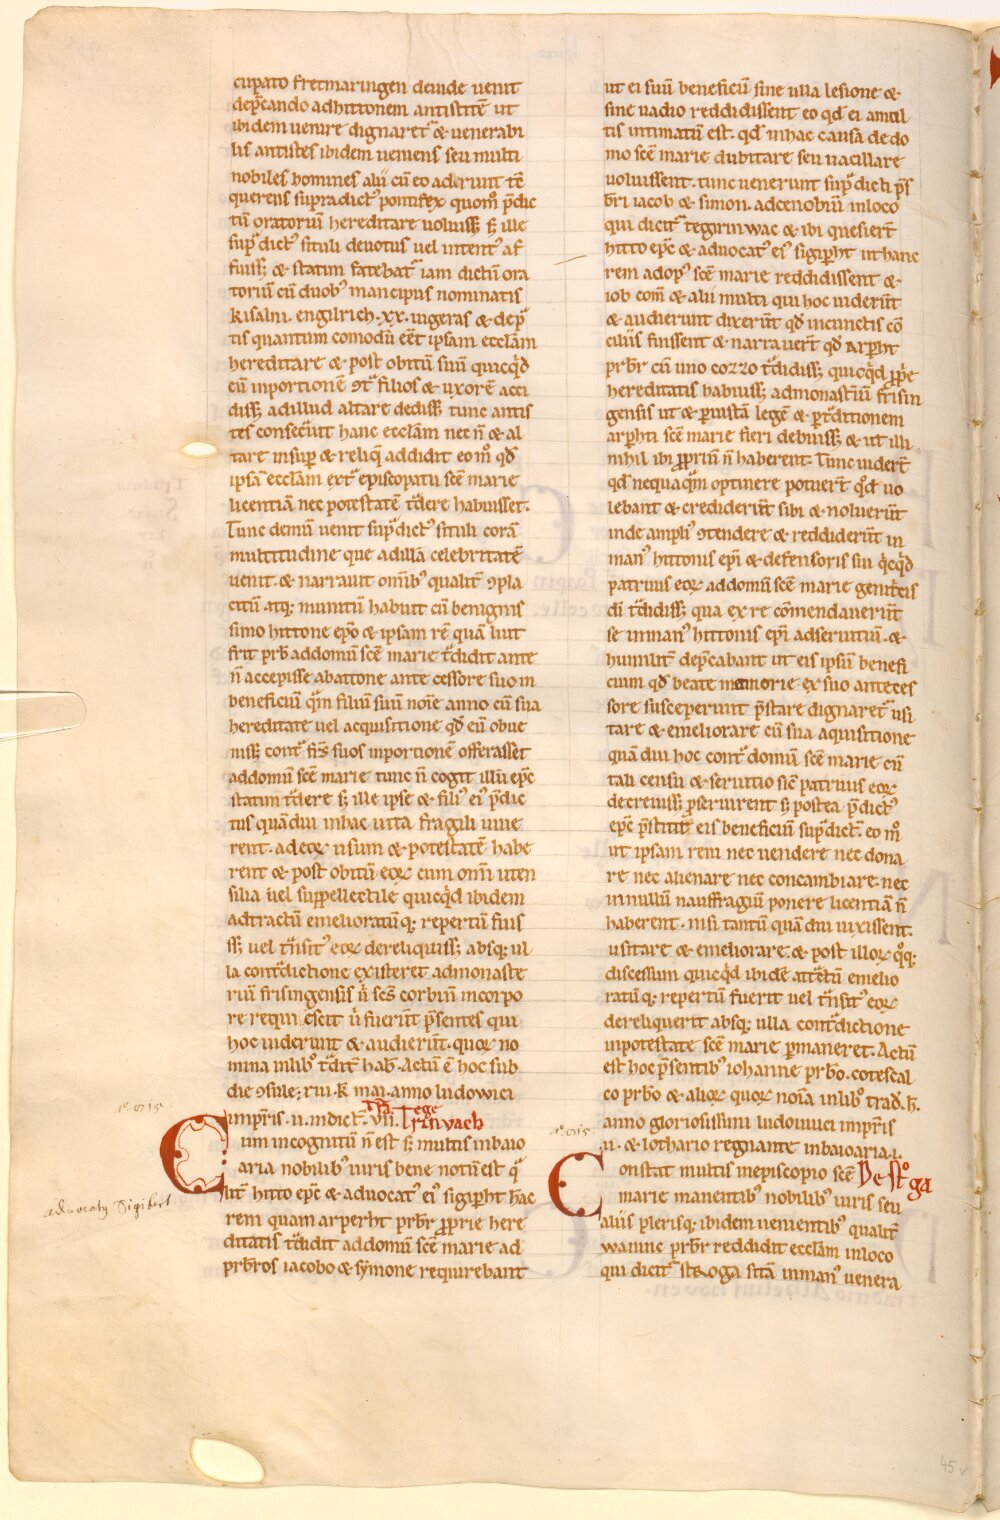 cupato fretmaringen deinde uenit
dep̄cando adhittonem antistitē ut
ibidem uenire dignaretᷣ & uenerabi
lis antistes ibidem ueniens seu multi
nobiles homines alii cū eo aderunt tē
querens supradictꝰ pontifex quom̊ p̄dic
tū oratoriū hereditare uoluiss& sꝫ ille
supᷣdictꝰ situli deuotus uel intentꝰ af
fuiss& & statim fatebatᷣ iam dictū ora
toriū cū duobꝰ mancipiis nominatis
kisalni. engilrich. xx. iugeras & dep̄
tis quantum comodū eēt ipsam ecclām
hereditare & post obitū suū quicq̇d
eū inportionē ꝯtᷣ filios & uxorē acci
diss& adillud altare dediss& tunc antis
tes consecᷣuit hanc ecclām nec ñ & al
tare insup̱ & reliq̇ addidit eo m̊ qd̄
ipsā ecclām extᷣ episcopatū scē marie
licentiā nec potestatē tᷣdere habuisset.
Tunc demū uenit supᷣdictꝰ situli corā
multitudine que adillā celebritatē
uenit. & narrauit om̄ibꝰ qualit̄ ꝯpla
citū atqꝫ munitū habuit cū benignis
simo hittone ep̄o & ipsam rē quā liut
frit prb̄ addomū scē marie tᷣdidit ante
ñ accepisse abattone ante cessore suo in
beneficiū q̄m filiū suū noīe anno cū sua
hereditate uel acquisitione qd̄ eū obue
niss& contᷣ fr̄s suos inportionē offerasset
addomū scē marie tunc ñ cogit illū ep̄c
statim tᷣdere sꝫ ille ipse & filiꝰ eiꝰ p̄dic
tus quādiu inhac uita fragili uiue
rent. ad eoꝝ usum & potestatē habe
rent & post obitū eoꝝ cum om̄i uten
silia uel suppellectile quicq̇d ibidem
adtractū emelioratūqꝫ repertū fuis
s& uel tᷣnsitꝰ eoꝝ dereliquiss& absqꝫ ul
la contᷣdictione existeret admonaste
riū frisingensis u̇ sc̄s corbini incorpo
re requiescit u̇ fuerūt p̄sentes qui
hoc uiderunt & audierūt. quoꝝ no
mina inlibꝰ tᷣdit̄ hab̄. Actū ē hoc sub
die ꝯsule. xiii. k̄ mai. anno ludowici
aᵒ. 815.
imp̄ris. ii. indict̄. viii. Tᷣa Tege
rinvach
Cum incognitū ñ est sꝫ multis inbaio
aria nobilibꝰ uiris bene notū est qᷣ
advocatus Sigibert
lit̄ hitto ep̄c & aduocatꝰ eiꝰ sigip̱ht h̄ac
rem quam arperht prb̄r ꝓprie here
ditatis tᷣdidit addomū scē marie ad
prb̄ros iacobo & symone requirebant
ut ei suū beneficiū sine ulla lesione &
sine uadio reddidissent eo qd̄ ei ancil
tis intimatū est. qd̄ inhac causa de do
mo scē marie dubitare seu uacillare
uoluissent. tunc uenerunt supᷣdicti p̄s
b̄ri iacob & simon. adcenobiū inloco
qui dicitᷣ tegirinwac & ibi quesier̄t
hitto ep̄c & aduocatꝰ eiꝰ sigip̱ht ut hanc
rem adopꝰ scē marie reddidissent &
iob com̄ & alii multi qui hoc uiderūt
& audierunt dixerūt qd̄ incunctis cō
ciliis fuissent & narrauer̄t qd̄ arp̱ht
prb̄r cū uno cozzo tᷣdidiss& quicq̇d ꝓp̄e
hereditatis habuiss& admonast̄iū frisin
gensis ut & p̱ iustā legē & p̱ tᷣditionem
arp̱hti scē marie fieri debuiss& & ut illi
nihil ibi ꝓpriū ñ haberent. Tunc uider̄t
qd̄ nequaq̄m optinere potuer̄t qd̄ uo
lebant & crediderūt sibi & noluerūt
inde ampliꝰ ꝯtendere & reddiderūt in
manꝰ hittonis ep̄i & defensoris sui q̇cq̇d
patruus eoꝝ addomū scē marie genitᷣcis
dī tᷣdidiss& qua ex re cōmendauerūt
se inmanꝰ hittonis ep̄i adseruitiū. &
humilit̄ dep̄cabant ut eis ipsū benefi
cium qd̄ beate memorie ex suo anteces
sore susceperunt p̄stare dignaretᷣ usi
tare & emeliorare cū sua aquisitione
quā diu hoc contᷣ domū scē marie cū
tali censu & seruitio sic̄ patruus eoꝝ
decreuiss& ꝓseruirent sꝫ postea p̄dictꝰ
ep̄c p̄stitit eis beneficiū supᷣdict̄. eo m̊
ut ipsam rem nec uendere nec dona
re nec alienare nec concambiare. nec
innullū nauffragiū ponere licentiā ñ
haberent. nisi tantū quā diu uixissent.
usitare & emeliorare. & post illoꝝ q̊qꝫ
discessum quicq̇d ibidē attᷣctū emelio
ratūqꝫ repertū fuerit uel tᷣnsitꝰ eoꝝ
dereliquerit absqꝫ ulla contᷣdictione
inpotestate scē marie p̱maneret. Actū
est hoc p̄sentibꝰ iohanne prb̄o. cotescal
co prb̄o & alioꝝ quoꝝ noīa inlibꝰ trad̄. h̄.
anno gloriosissimi ludouuici imp̄ris
aᵒ. 815.
.ii. & lothario regnante inbaioaria. i.
Constat multis inepiscopio scē De stᵒga
marie manentibꝰ nobilibꝰ uiris seu
aliis plerisqꝫ ibidem uenientibꝰ qualit̄
waninc prb̄r reddidit ecclām inloco
qui dicitᷣ stroga sitā inmanꝰ uenera
45v